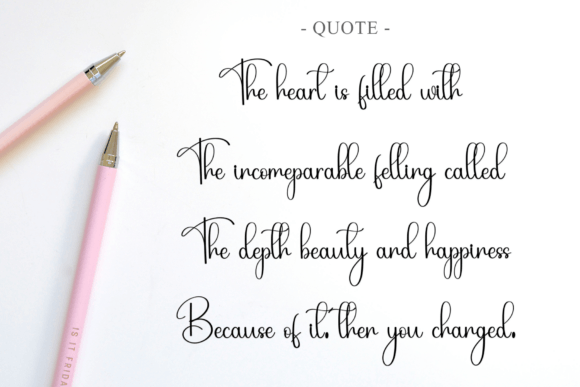 - QUOTE -
The heart is filled with
The incomeparable felling called
The depth beauty and happiness
Because of it. then you changed.
IS IT FRIDA